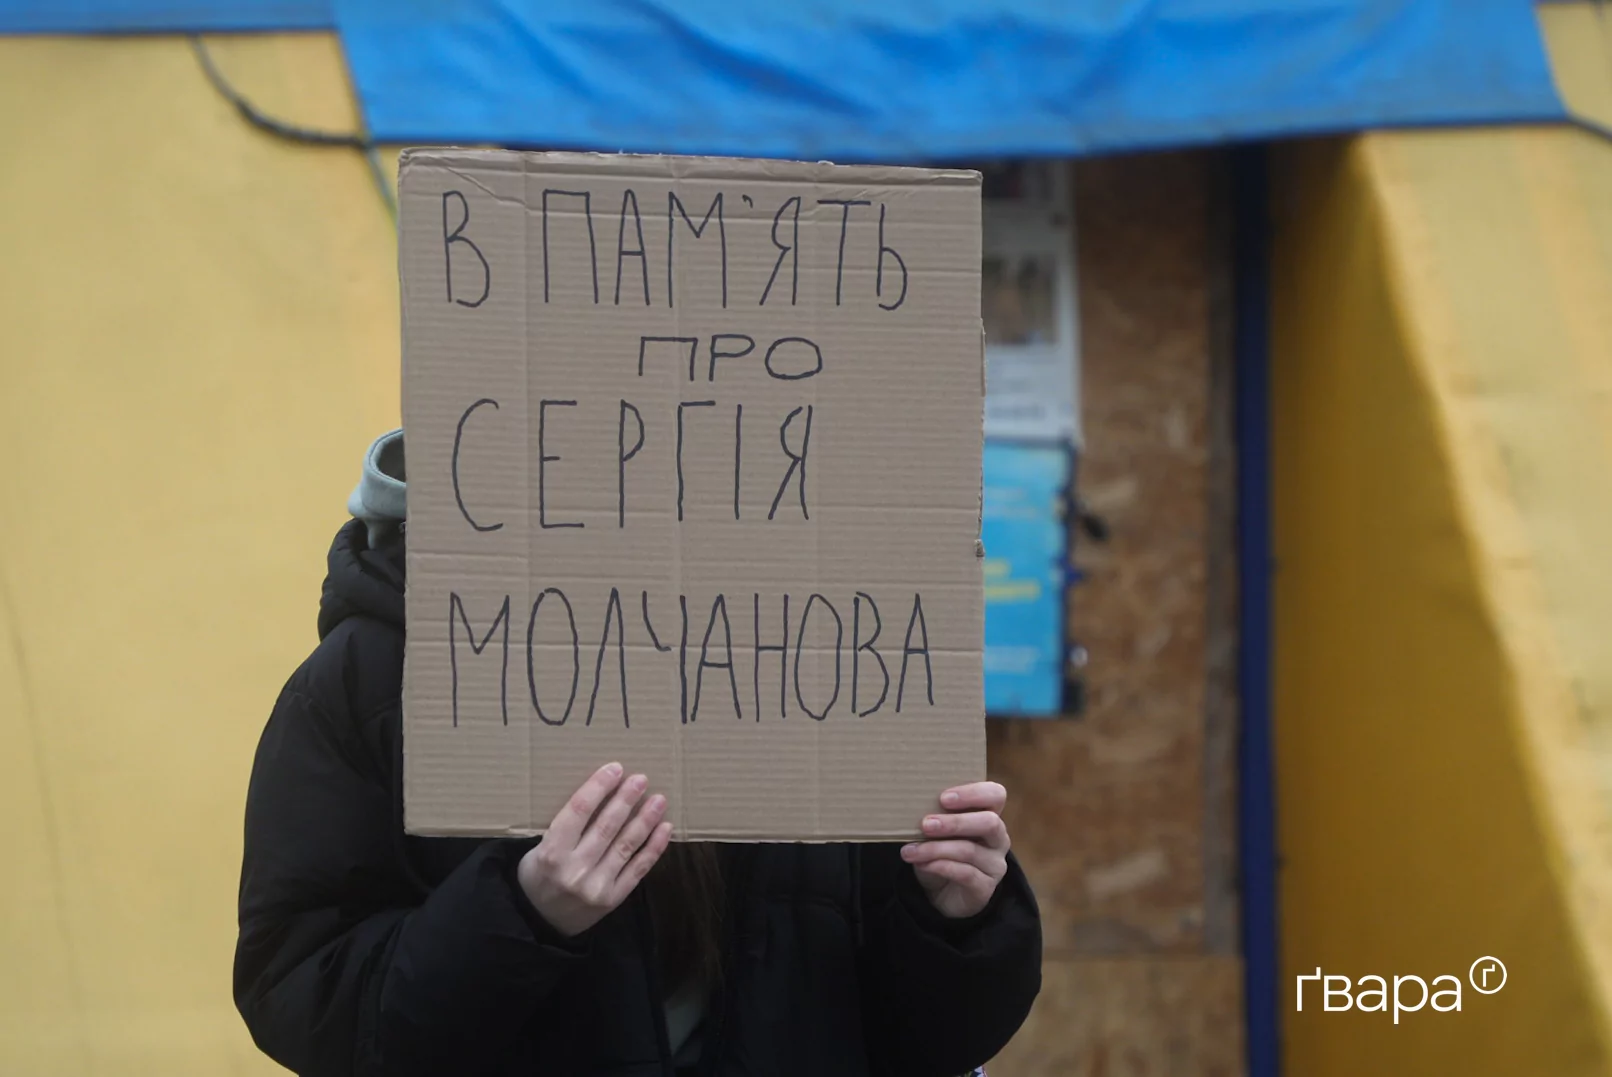 В ПАМ'ЯТЬ
ПРО
СЕРГІЯ
МОЛЧАНОВА
ґвара ґ